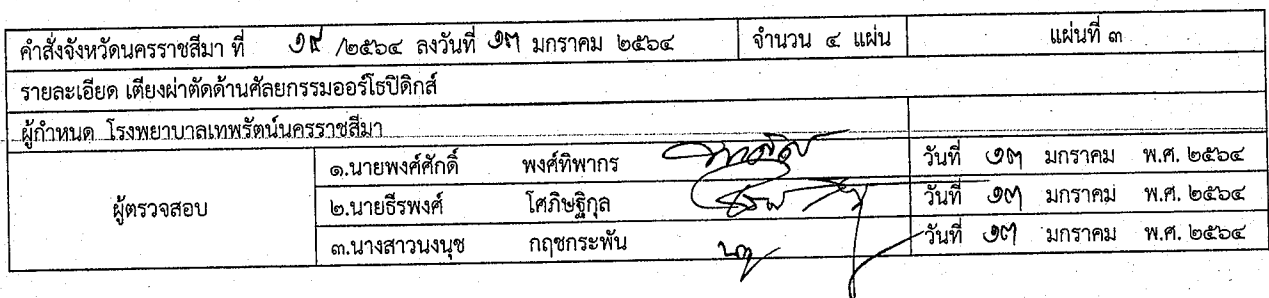 คำสั่งจังหวัดนครราชสีมา ที่ ๑๙ /๒๕๖๔ ลงวันที่ ๑๓ มกราคม ๒๕๖๔ จำนวน ๔ แผ่น แผ่นที่ ๓
รายละเอียด เตียงผ่าตัดด้านศัลยกรรมออร์โธปิดิกส์
ผู้กำหนด โรงพยาบาลเทพรัตน์นครราชสีมา
ผู้ตรวจสอบ
๑.นายพงศ์ศักดิ์ พงศ์ทิพากร วันที่ ๑๓ มกราคม พ.ศ. ๒๕๖๔
๒.นายธีรพงศ์ โศภิษฐิกุล วันที่ ๑๓ มกราคม พ.ศ. ๒๕๖๔
๓.นางสาวนงนุช กฤชกระพัน วันที่ ๑๓ มกราคม พ.ศ. ๒๕๖๔